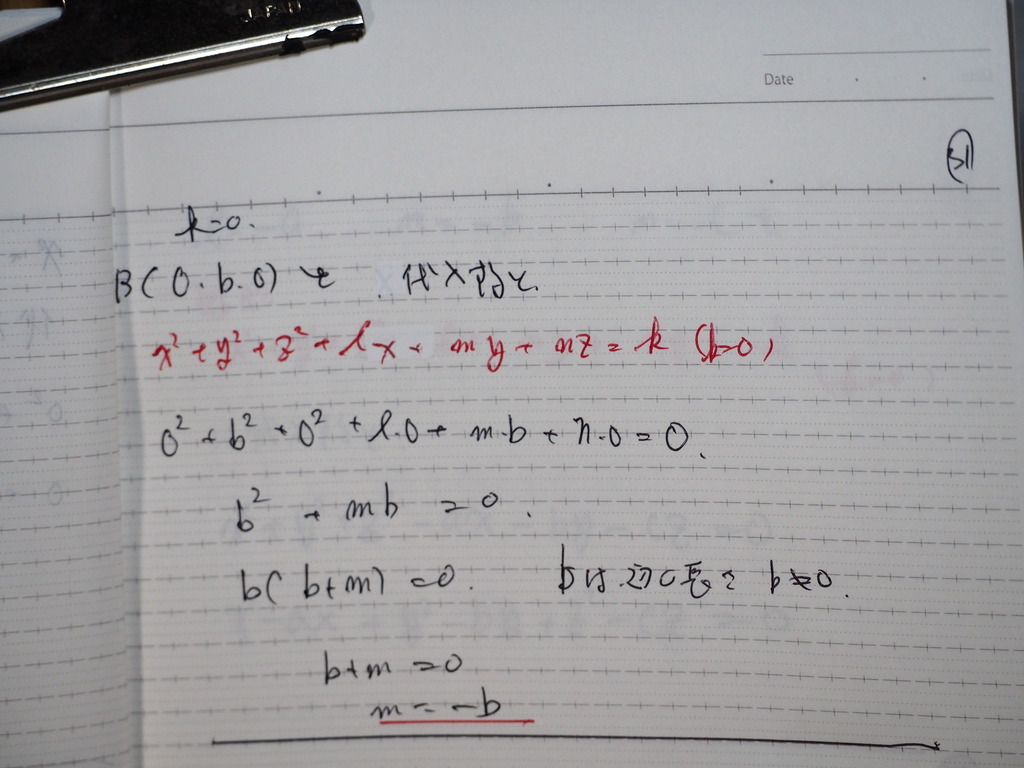 JAPAN
Date
31
k=0.
B(0.b.0) を 代入すると
x²+y²+z²+lx+my+nz=k (k=0)
0²+b²+0²+l.0+m.b+n.0=0.
b²+mb=0.
b(b+m)=0. bは辺の長さ b≠0.
b+m=0
m=-b